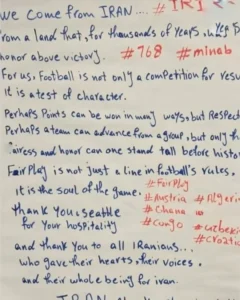 we come from IRAN....
#IRI
from a land that, for thousands of years,
honor above victory. #768 #minab
For us, football is not only a competition for resu
it is a test of character.
Perhaps Points can be won in many ways, but Respec
Perhaps a team can advance from a group, but only th
irness and honor can one stand tall before histor
Fair Play is not just a line in football's rules,
it is the soul of the game.
#FairPlay
#Austria #Algeri
thank you seattle
#Ghana
for your hospitality
#Congo #uzbeki
#croatic
and thank you to all IRanians...
who gave their hearts, their voices,
and their whole being for iran.